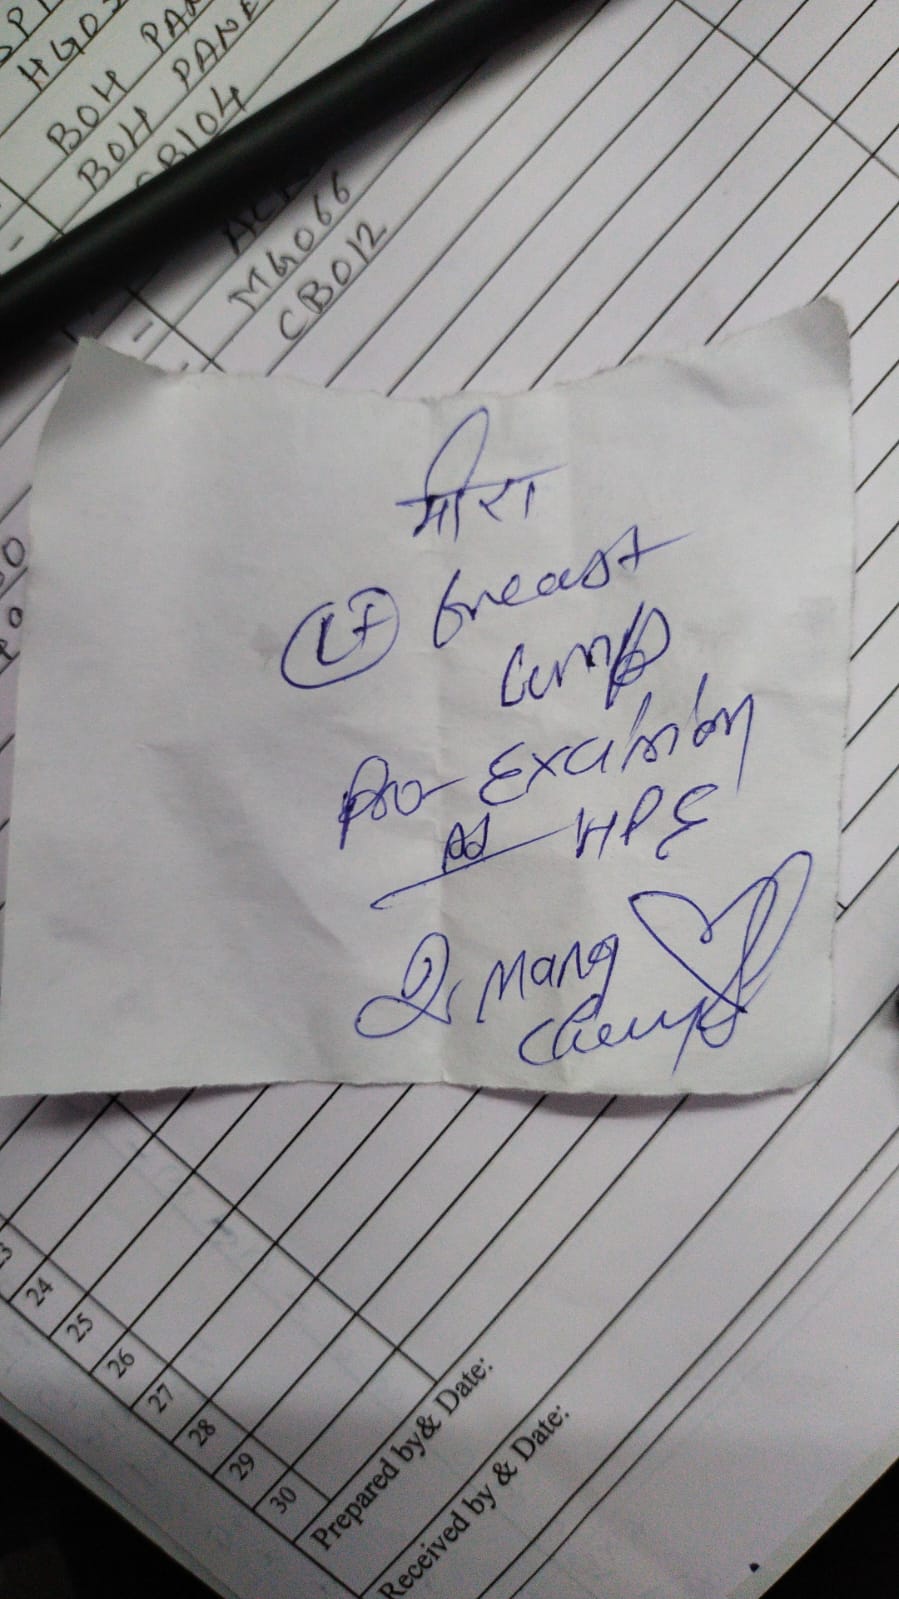 HGO
BOH PAN
BOH PANE
CB104
MG066
CB012
मीरा
LT breast
Lump
Pro- Excision
HPE
Dr Mang
24
25
26
27
28
29
30
Prepared by& Date:
Received by & Date: